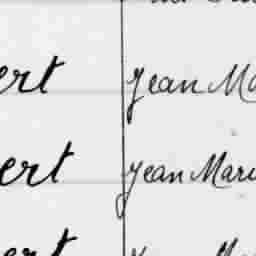 ert Jean Ma
ert Jean Mari
ert